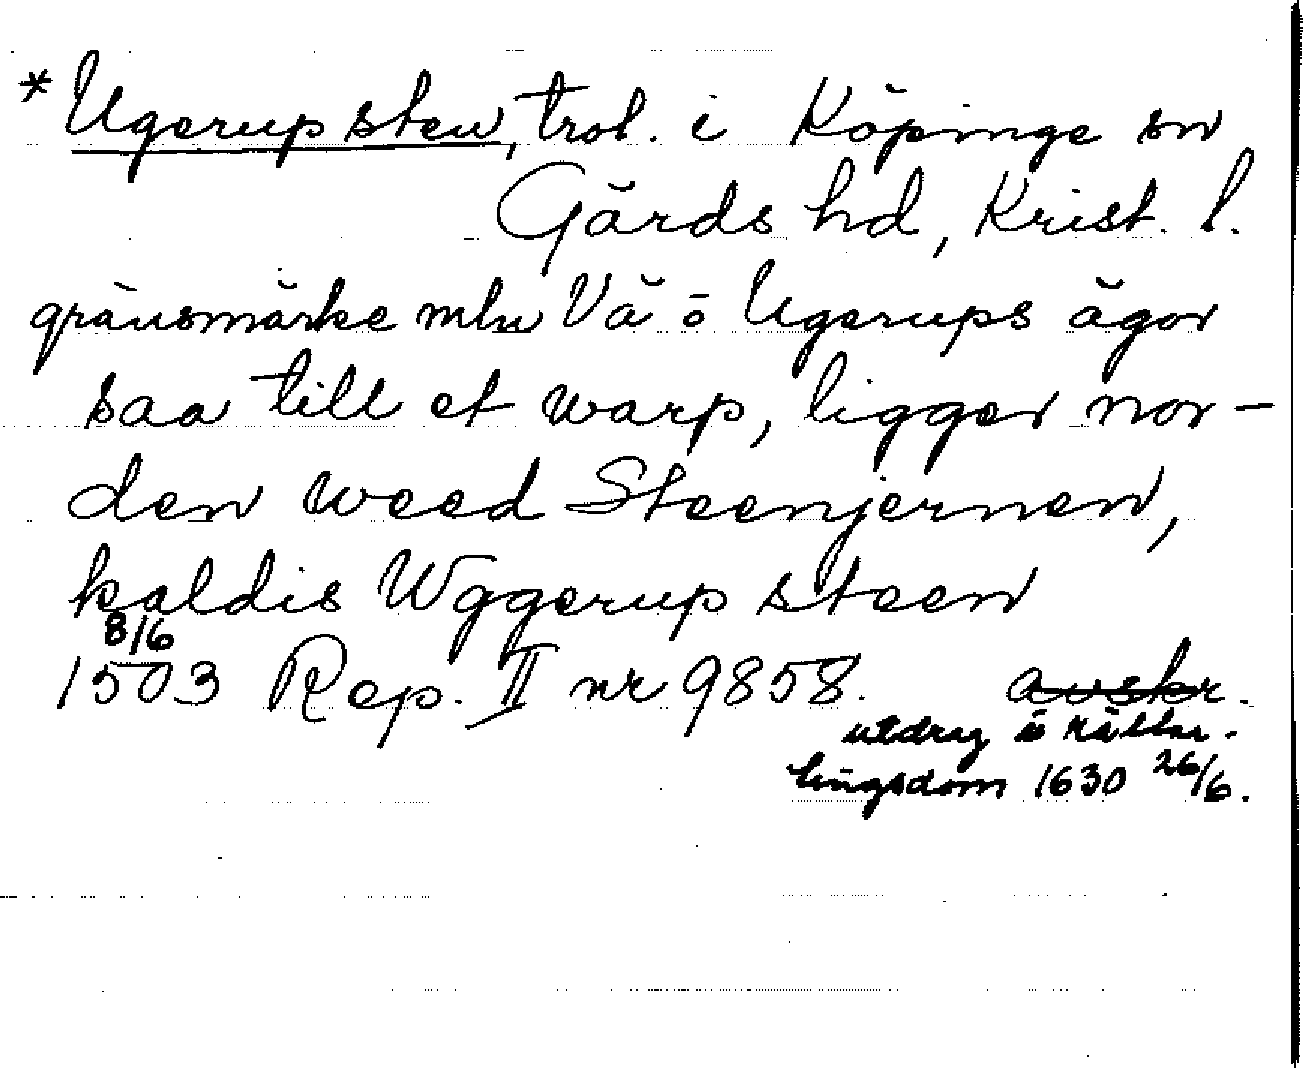 *Ugerup sten, trol. i Köpinge sn
Gärds hd, Krist. l.
gränsmärke mln Vä o Ugerups ägor
saa till et warp, ligger nor-
den weed Steenjernen,
kaldis Wggerup steen
8/6
1503 Rep. II nr 9858. avskr.
utdrag i rättar-
tingsdom 1630 26/6.